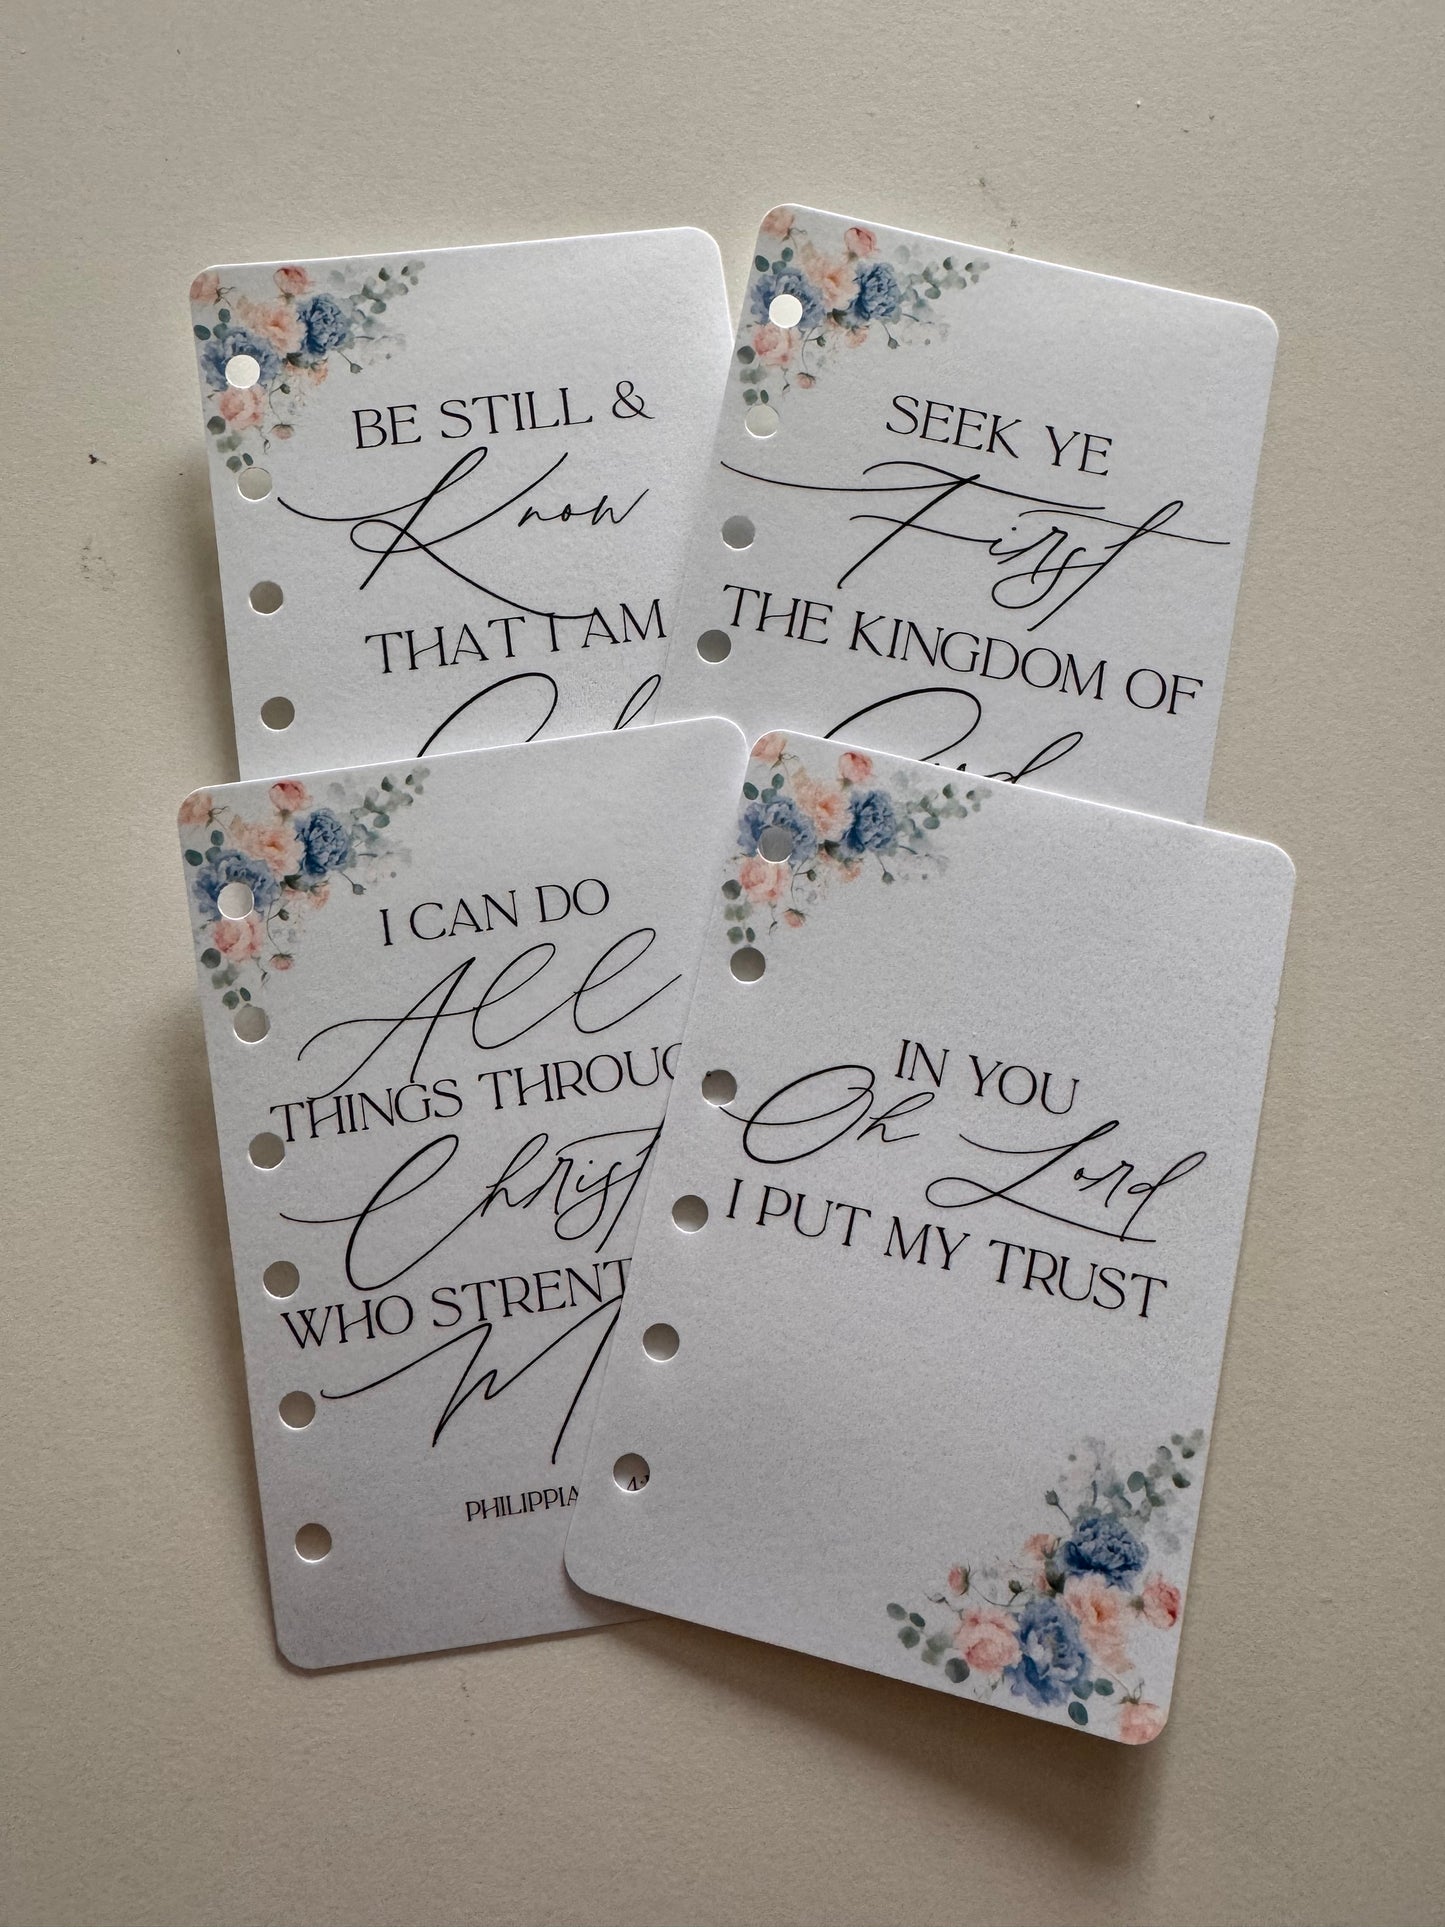 BE STILL &
Know
THAT I AM
SEEK YE
First
THE KINGDOM OF
God
I CAN DO
All
THINGS THROUG
Christ
WHO STRENT
M
PHILIPPIA
IN YOU
Oh Lord
I PUT MY TRUST